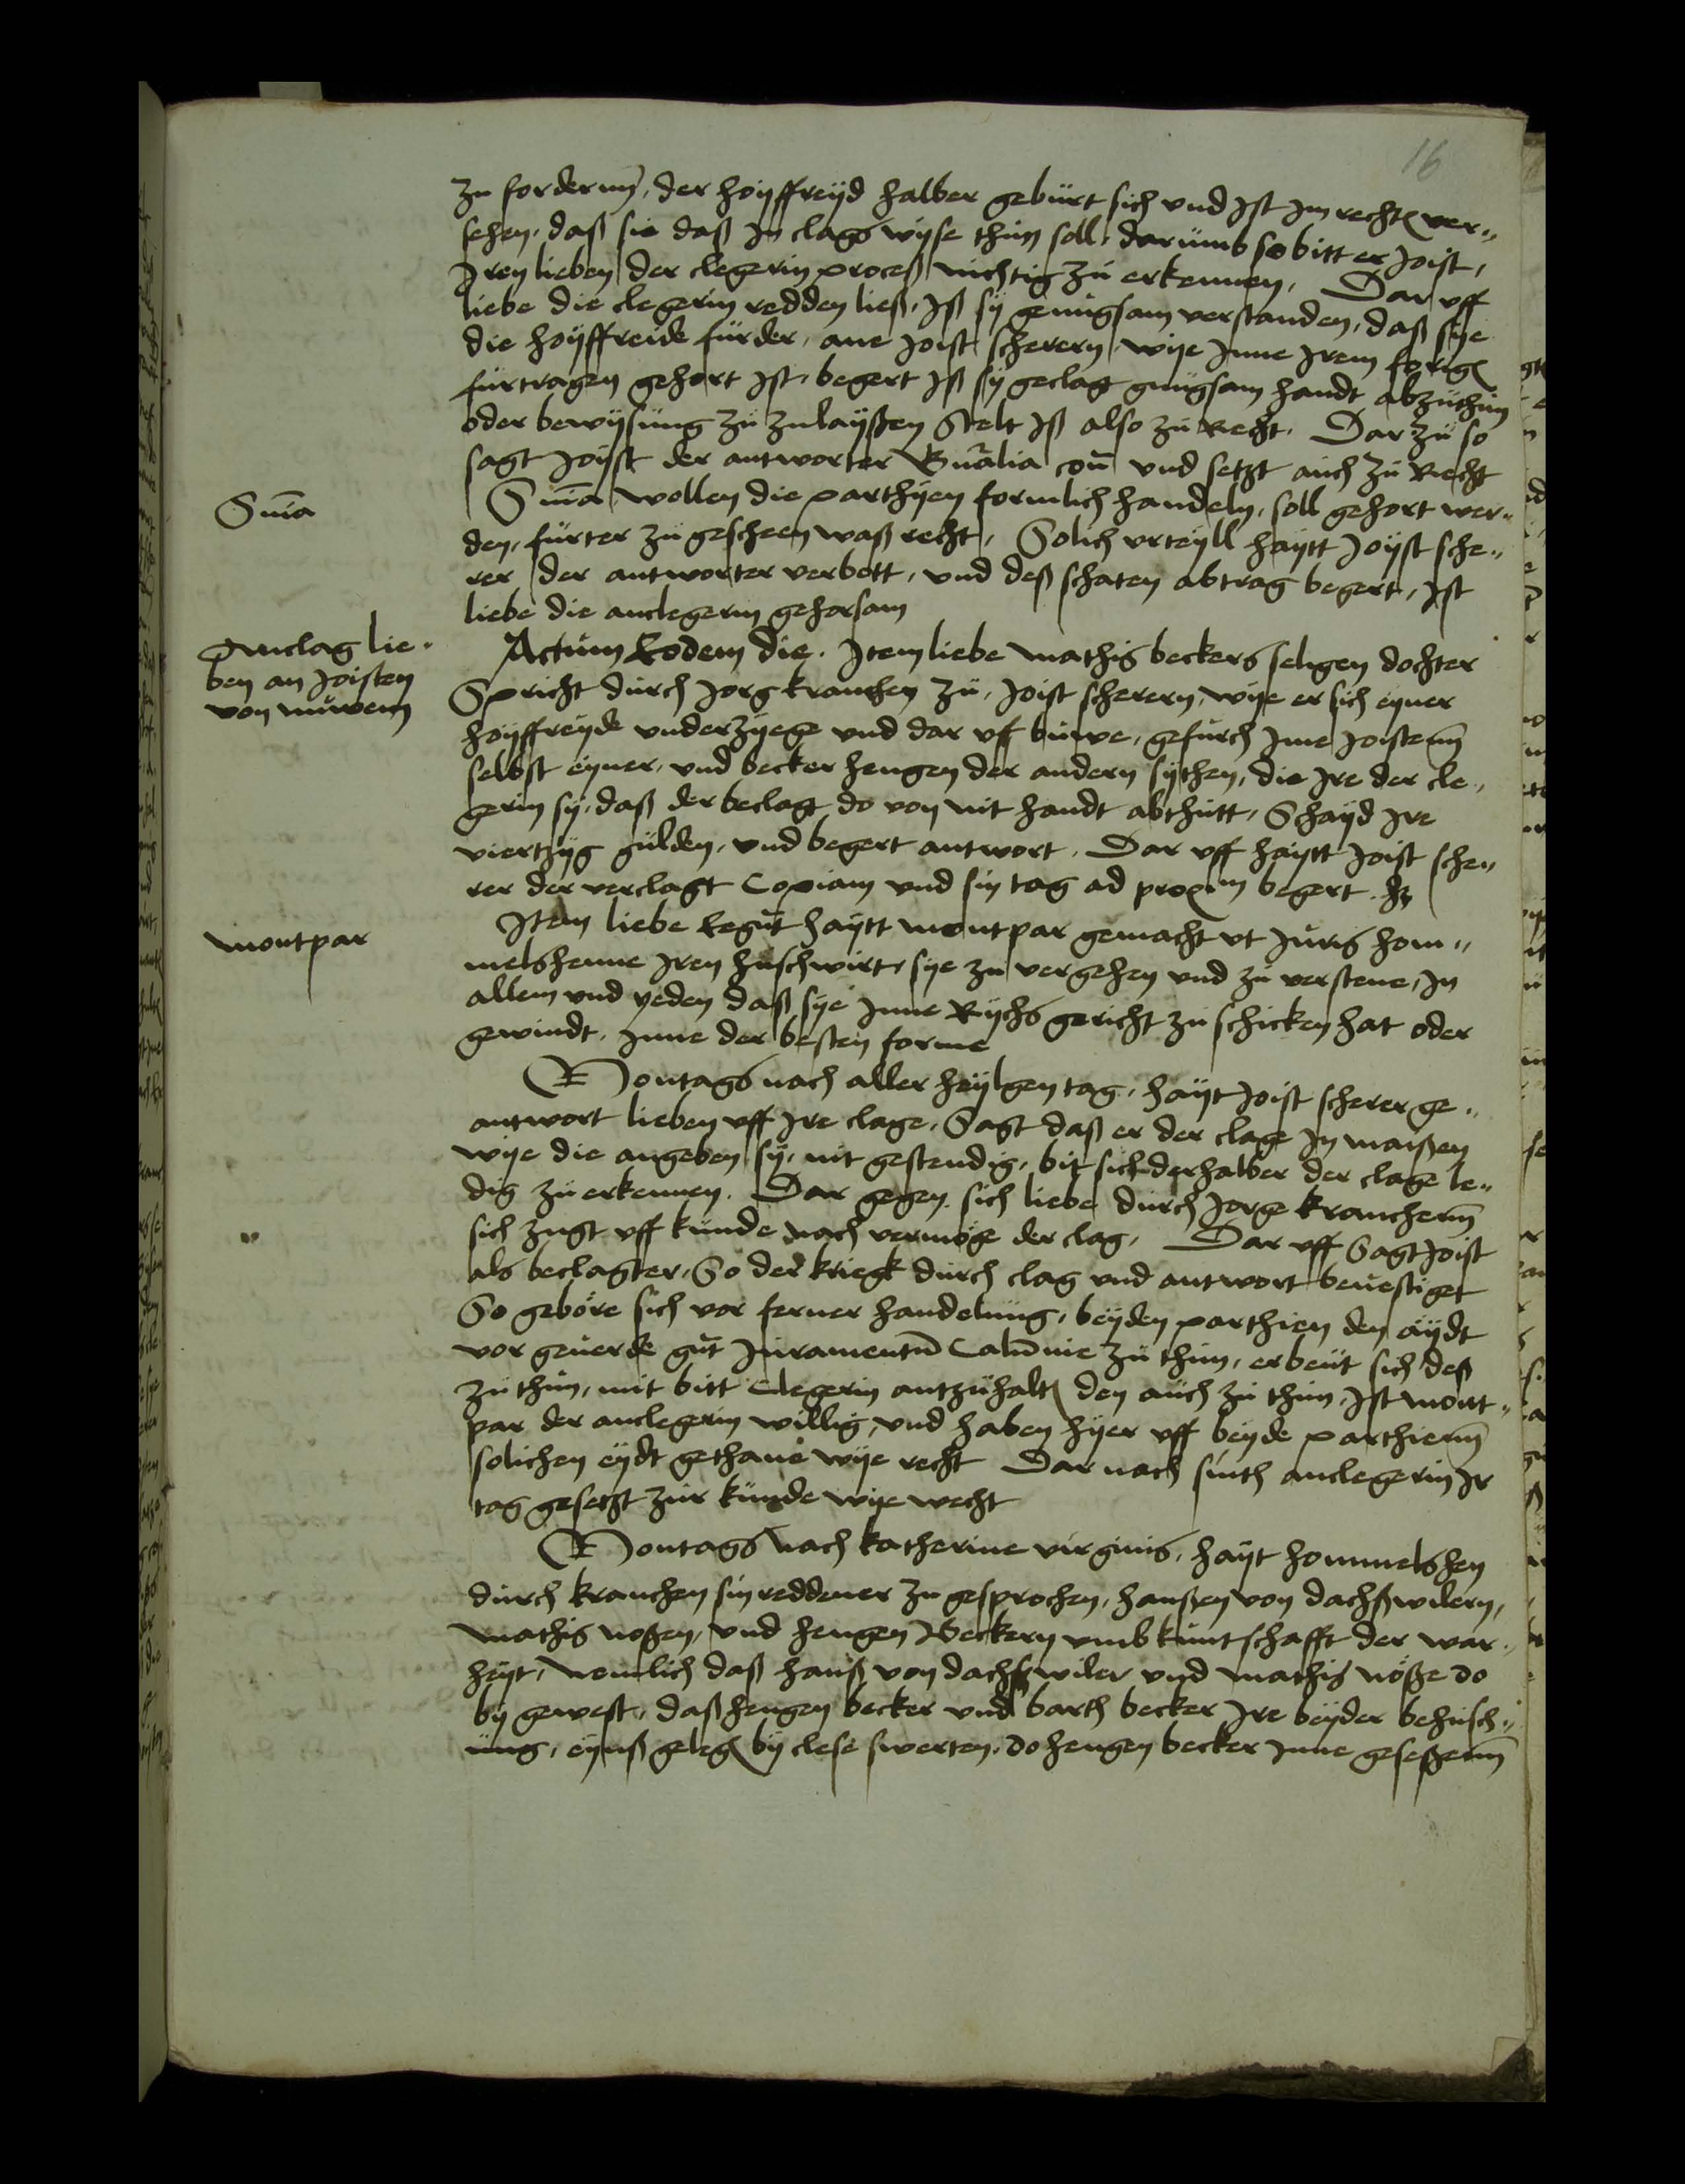 16
zu fordernn̄, der hoyffreyd halber gebürt sich vnd Ist Im recht ver„
sehen, daß sie daß In clags wyse thün soll, darümb so bitt er Joist,
Iren lieben der clegerin proceß nichtig zü erkennen, Dar vff
liebe die clegerin redden ließ, Iß sy genügsam verstanden, daß sye
die hoyffreide fürder, ane Joist scherern, wye Inne Irem forige
fürtragen gehort Ist, begert Iß sy geclagt gnügsam handt abzüthün
oder bewysüng zü zulayßen Stelt Iß also zü Recht, Dar zü so
sagt Joyst der antworter Gn̄alia con̄ vnd setzt aüch zü Recht
Sn̄ia
Sn̄ia wollen die parthyen formlich handeln, soll gehort wer„
den, fürter zü gescheen waß recht, Solich vrteyll haytt Joyst sche„
rer der antworter verbott, vnd deß schaten abtrag begert, Ist
liebe die anclegerin gehorsam
Anclag lie„
ben an Joisten
von nüwem
Actüm Eodem die. Item liebe mathis beckers seligen dochter
Spricht dürch Jorg kranchen zü, Joist scherern, wye er sich eyner
hoyffreyde vnderzyege vnd dar vff büwe, gefürch Ime Joistenn̄
selbst eyner, vnd becker hengen der andern sythen, die Ire der cle„
gerin sy, daß der beclagt do von nit handt abthütt, Schayd Ire
viertzyg gülden, vnd begert antwort. Dar vff haytt Joist sche„
rer der verclagt Copiam vnd sin tag ad proxim̄ begert.
montpar
Item liebe legūt haytt montpar gemacht vt Jüris hom„
melshenne Iren hüschwirt, sye zu vergehen vnd zü verstene, In
allem vnd yeden daß sye Inne Rychs gericht zü schicken hat oder
gewindt, Inne der besten forme
Montags nach aller heylgen tag, hayt Joist scherer ge„
antwort lieben vff Ire clage, Sagt daß er der clage In maißen
wye die angeben sy, nit gestendig, bit sich derhalber der clage le„
dig zü erkennen. Dar gegen sich liebe dürch Jorge kranchenn̄
sich zugt vff künde nach vermöge der clag, Dar vff Sagt Joist
als beclagter, So der kriegk dürch clag vnd antwort beuestiget
So geböre sich vor ferner handelüng, beyden parthien den aydt
vor geuerde gūt Jüramentū Calūnie zü thün, erbeüt sich deß
zü thün, mit bitt Clegerin antzühalt den aüch zü thün, Ist mont„
par der anclegerin willig, vnd haben hyer vff beyde parthienn̄
solichen eydt gethane wye recht Dar nach sinth anclegerin Ir
tag gesetzt zür künde wye wecht
Montags nach katherine virginis, hayt hommelshen
dürch kranchen sin reddener zu gesprochen, hanßen von dachßwilern,
mathis noßen, vnd hengen Beckern vmb küntschafft der war„
heyt, nemlich daß hanß von dachßwiler vnd mathis nöße do
by gewest, daß hengen becker vnd barth becker Ire beyder behüsch„
üng, eynß geleg by clese swerten, do hengen becker Inne geseßenn̄